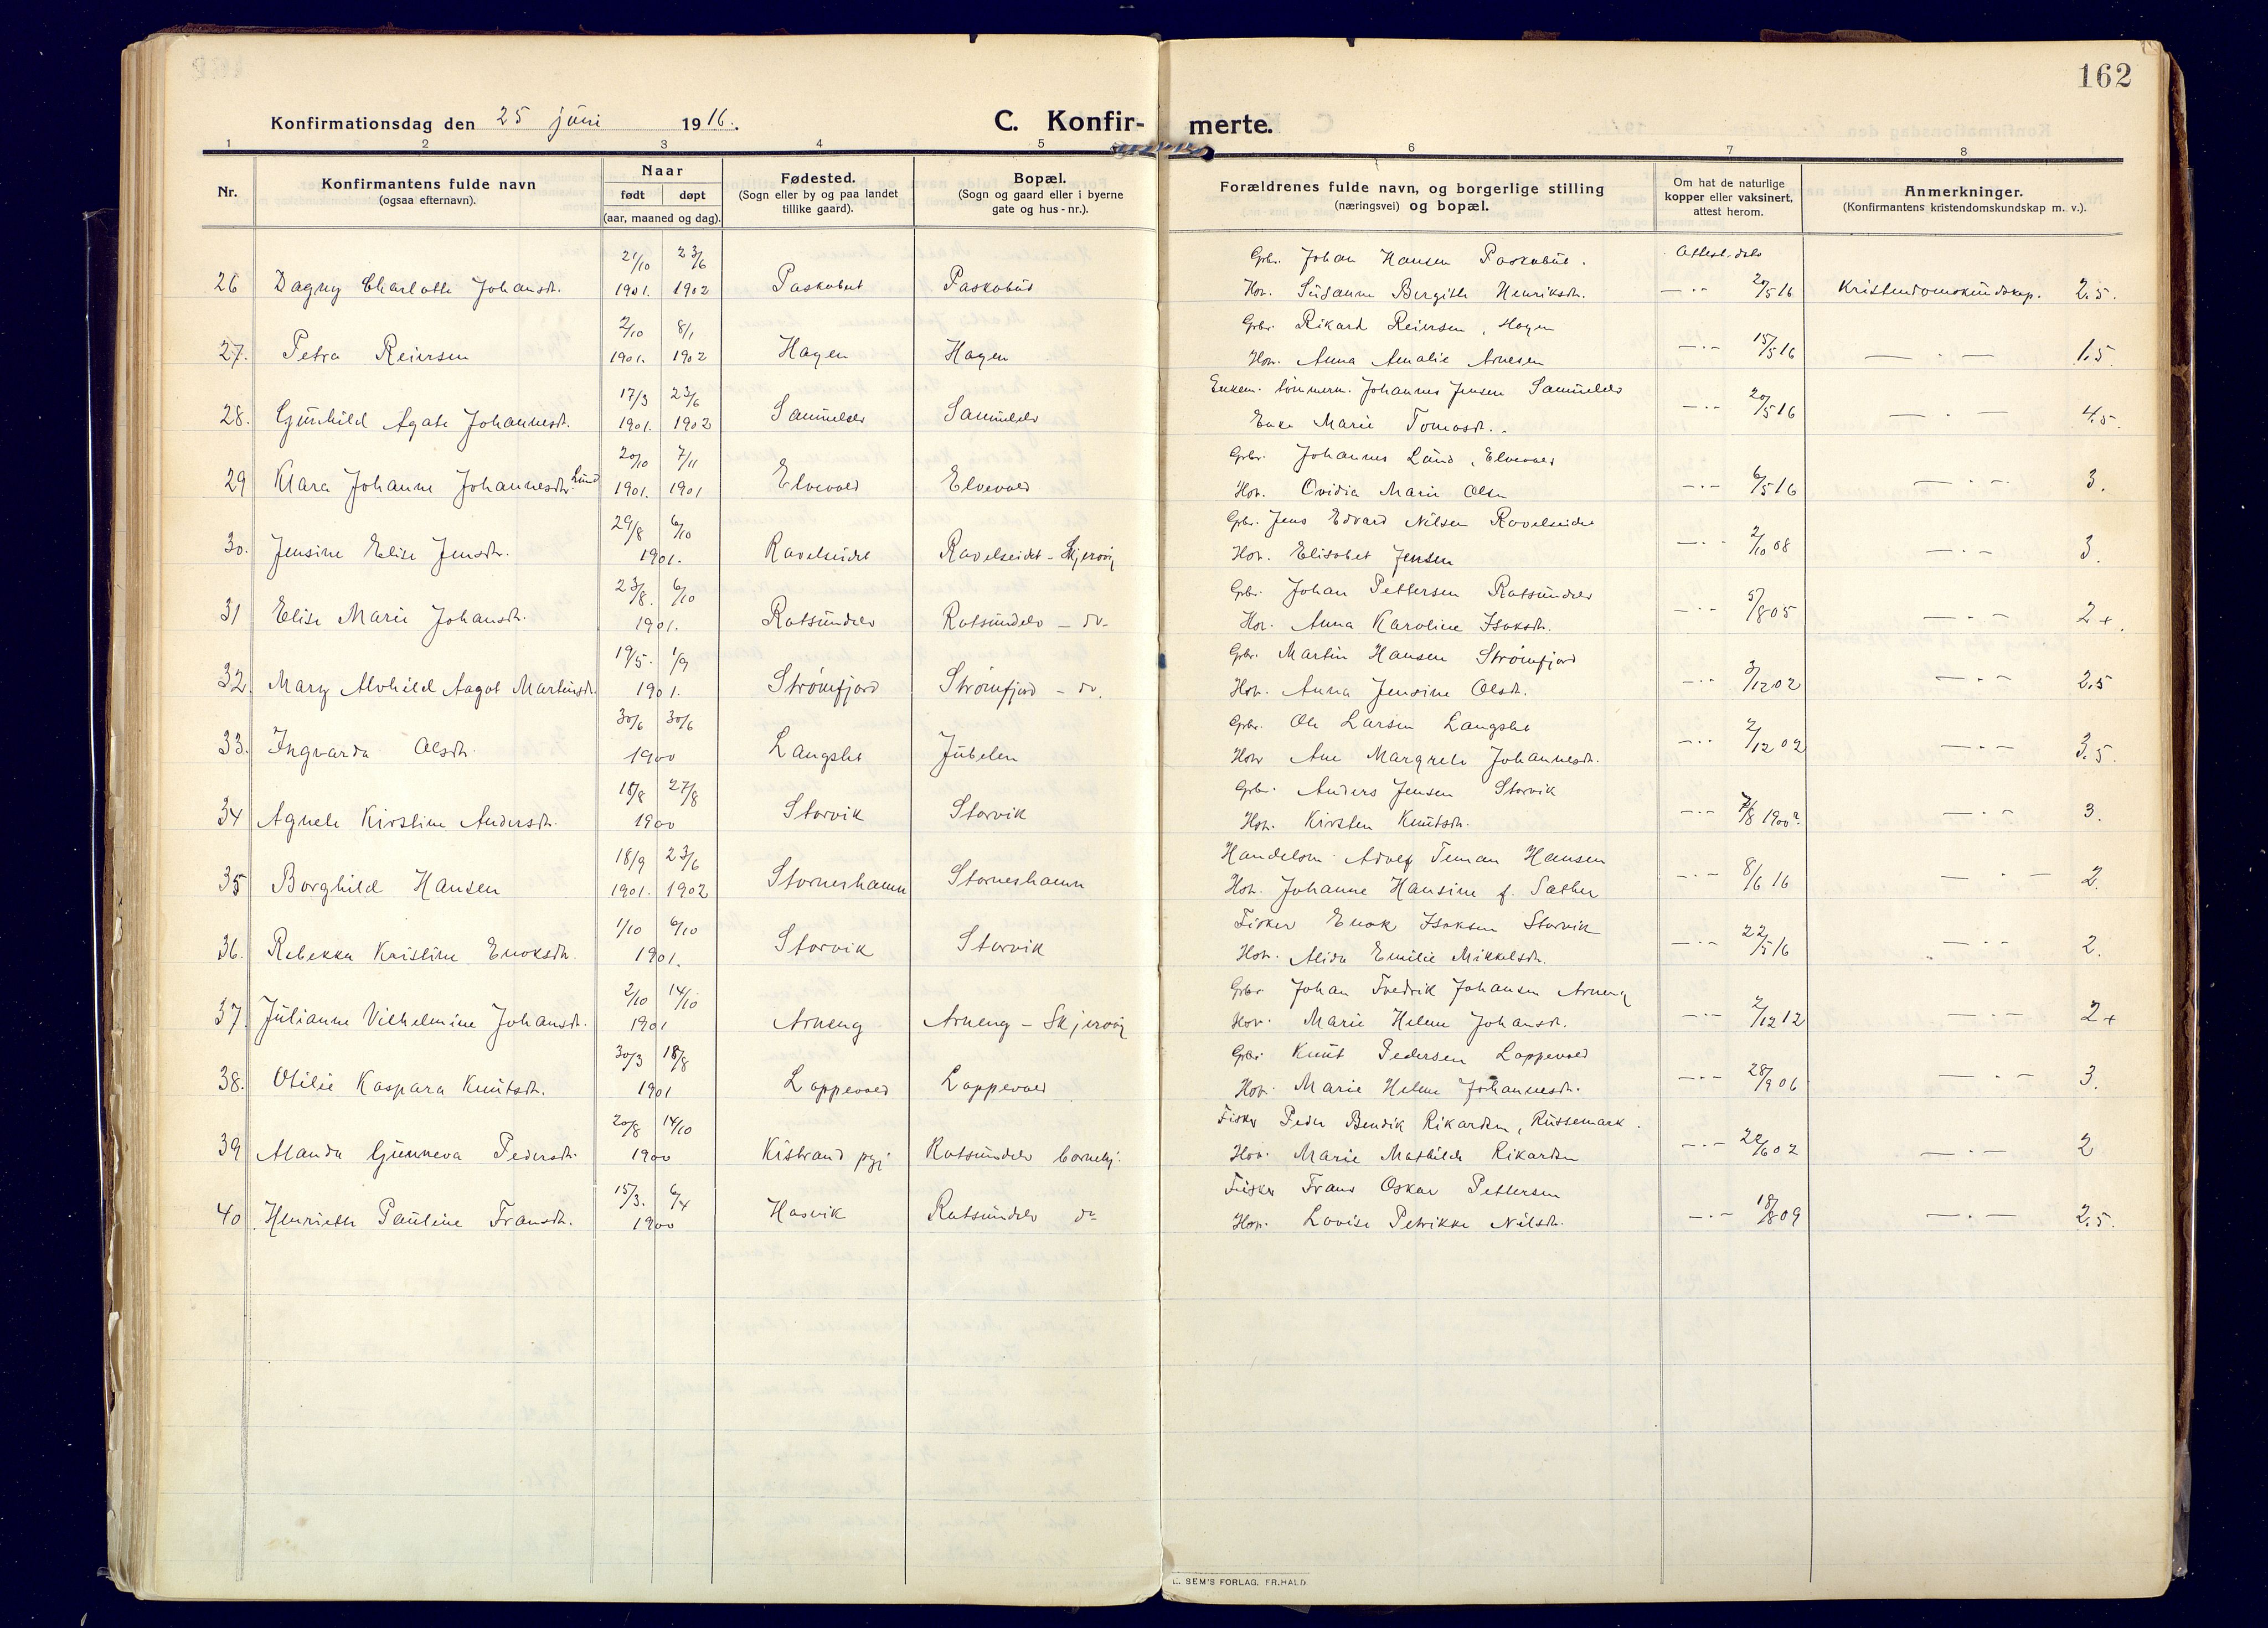 162
Konfirmationsdag den 25 juni 1916.
C. Konfir-merte.
1 2 3 4 5 6 7 8
Nr.
Konfirmantens fulde navn (ogsaa efternavn).
Naar født døpt (aar, maaned og dag).
Fødested. (Sogn eller by og paa landet tillike gaard).
Bopæl. (Sogn og gaard eller i byerne gate og hus-nr.).
Forældrenes fulde navn, og borgerlige stilling (næringsvei) og bopæl.
Om hat de naturlige kopper eller vaksinert, attest herom.
Anmerkninger. (Konfirmantens kristendomskundskap m. v.).
Gbr. Johan Hansen Paskabut. Attest. dat.
26 Dagny Charlotte Johansdr. 21/10 1901. 23/6 1902 Paskabut Paskabut Hor. Susanne Bergitte Henriksdr. — 20/5 16 Kristendomskundskap. 2.5.
Gbr. Rikard Reiersen, Hagen
27. Petra Reiersen 2/10 1901. 8/1 1902 Hagen Hagen Hor. Anna Amalie Arnesen —.— 15/5 16 —.— 1.5
Enkem. tømmerm. Johannes Jensen Samuelelv
28. Gunhild Agate Johannesdr. 17/3 1901. 23/6 1902 Samuelelv Samuelelv Enke Marie Tomasdr. —.— 20/5 16 —.— 4.5.
Gbr. Johannes Lund, Elvevold
29 Klara Johanne Johannesdr. Lund 20/10 1901. 7/11 1901 Elvevold Elvevold Hor. Ovidia Marie Olsen —.— 6/5 16 —.— 3.
Gbr. Jens Edvard Nilsen Ravelseidet
30. Jensine Elise Jensdr. 29/8 6/10 1901. Ravelseidet Ravelseidet - Skjervøy Hor. Elisabet Jensen —.— 2/10 08 —.— 3.
Gbr. Johan Pettersen Rotsundelv
31 Elise Marie Johansdr. 23/8. 6/10 1901. Rotsundelv Rotsundelv - do- Hor. Anna Karoline Isaksdr. —.— 5/8 05 —.— 2+.
Gbr. Martin Hansen Strømfjord
32. Mary Alvhild Aagot Martinsdr. 19/5. 1/9 1901. Strømfjord Strømfjord - do. Hor. Anna Jensine Olsdr. —.— 3/12 02 —.— 2.5
Gbr. Ole Larsen Langslet
33. Ingvarda Olsdr. 30/6 30/6 1900 Langslet Jubelen Hor Ane Margrete Johannesdr. —.— 2/12 02 —.— 3.5.
Gbr. Anders Jensen Storvik
34 Agnete Kirstine Andersdr. 18/8 27/8 1900 Storvik Storvik Hor. Kirsten Knutsdr. —.— 7/8 1900? —.— 3.
Handelsm. Adolf Teman Hansen
35 Borghild Hansen 18/9 1901. 23/6 1902 Storneshamn Storneshamn Hor. Johanne Hansine f. Sæther —.— 8/6 16 —.— 2.
Fisker Enok Isaksen Storvik
36. Rebekka Kristine Enoksdr. 1/10 6/10 1901. Storvik Storvik Hor. Alida Emilie Mikkelsdr. —.— 22/5 16 —.— 2.
Gbr Johan Fredrik Johansen Arneng
37. Julianne Vilhelmine Johansdr. 2/10 14/10 1901 Arneng Arneng - Skjervøy Hor. Marie Helene Johansdr. —.— 2/12 12 —.— 2+
Gbr. Knut Pedersen Lappevold
38. Otilie Kaspara Knutsdr. 30/3 18/8 1901 Lappevold Lappevold Hor. Marie Helene Johannesdr. —.— 28/9 06 —.— 3.
Fisker Peder Bendik Rikardsen, Russemark.
39 Alanda Gunneva Pedersdr. 20/8 14/10 1900 Kistrand pgj Rotsundelv Hor. Marie Mathilde Rikardsen —.— 22/6 02 —.— 2
Fisker Frans Oskar Pettersen
40. Henriette Pauline Fransdr. 15/3. 6/4 1900 Hasvik Rotsundelv do Hor. Lovise Petrikke Nilsdr. —.— 18/8 09 —.— 2.5.
SEM'S FORLAG, FR.HALD